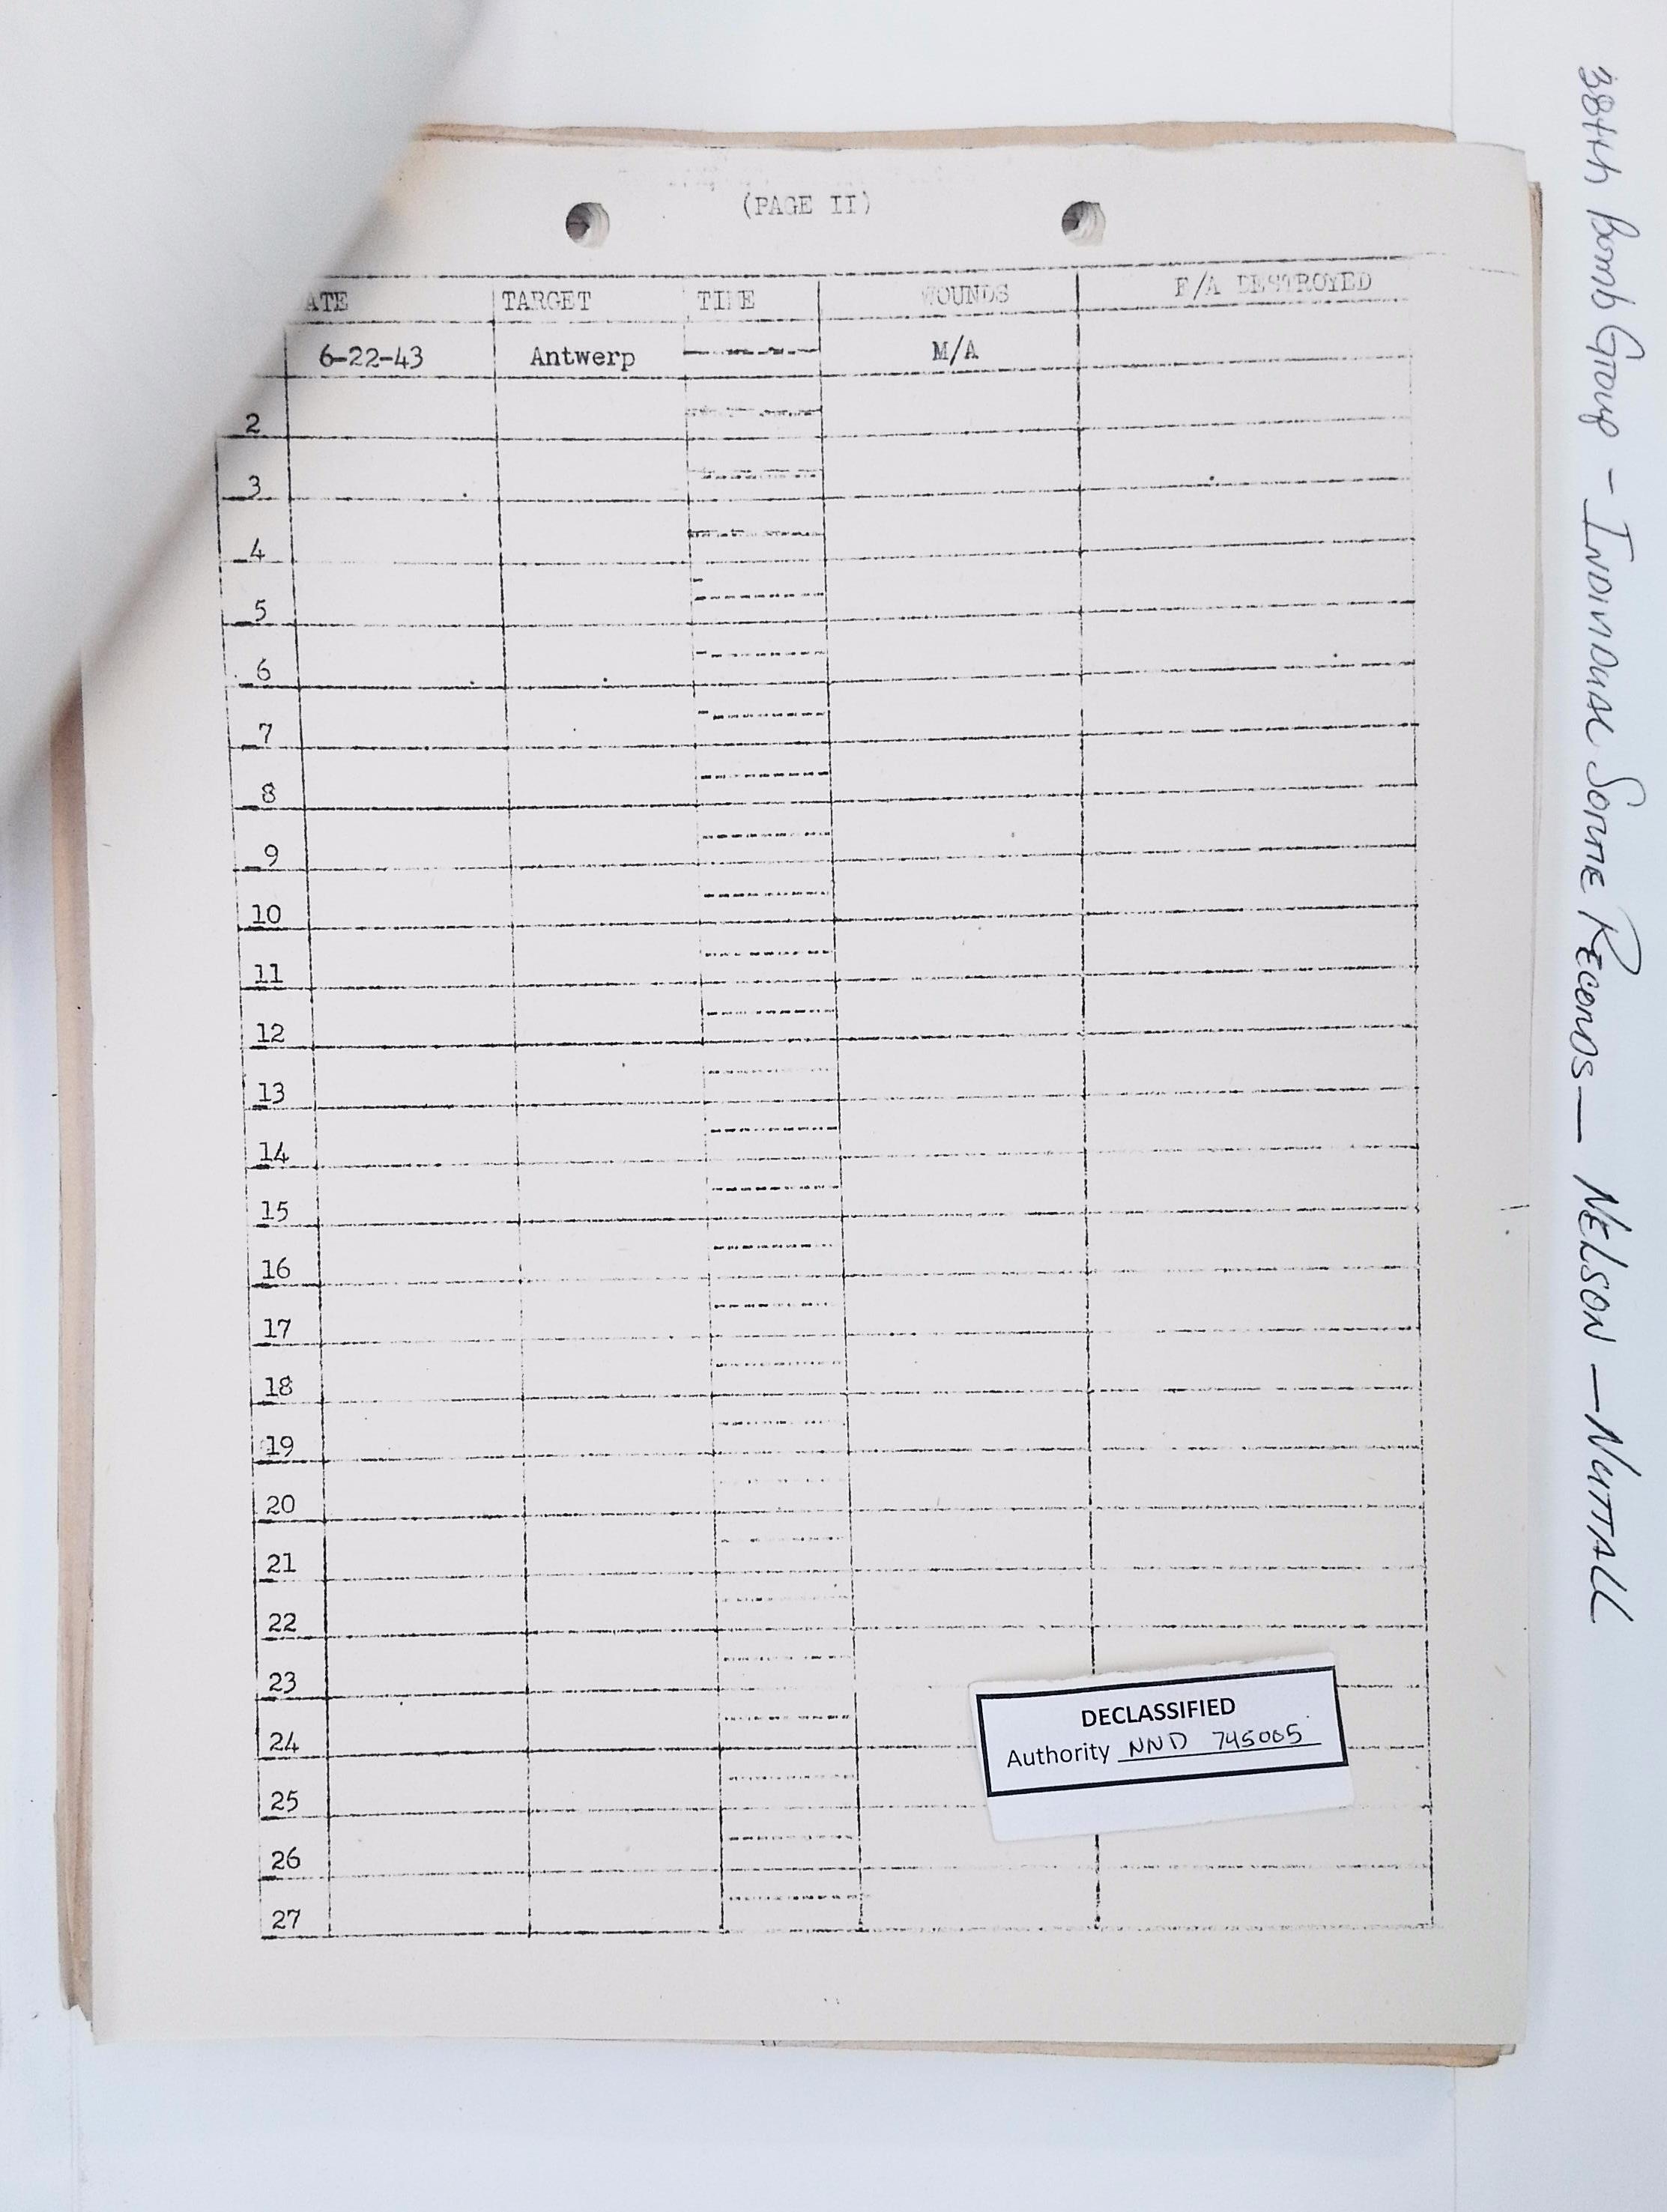 (PAGE II)
ATE TARGET TIME WOUNDS E/A DESTROYED
6-22-43 Antwerp M/A
2
3
4
5
6
7
8
9
10
11
12
13
14
15
16
17
18
19
20
21
22
23
24
25
26
27
DECLASSIFIED
Authority NND 745005
384th Bomb Group - INDIVIDUAL SORTIE RECORDS — NELSON — NUTTALL